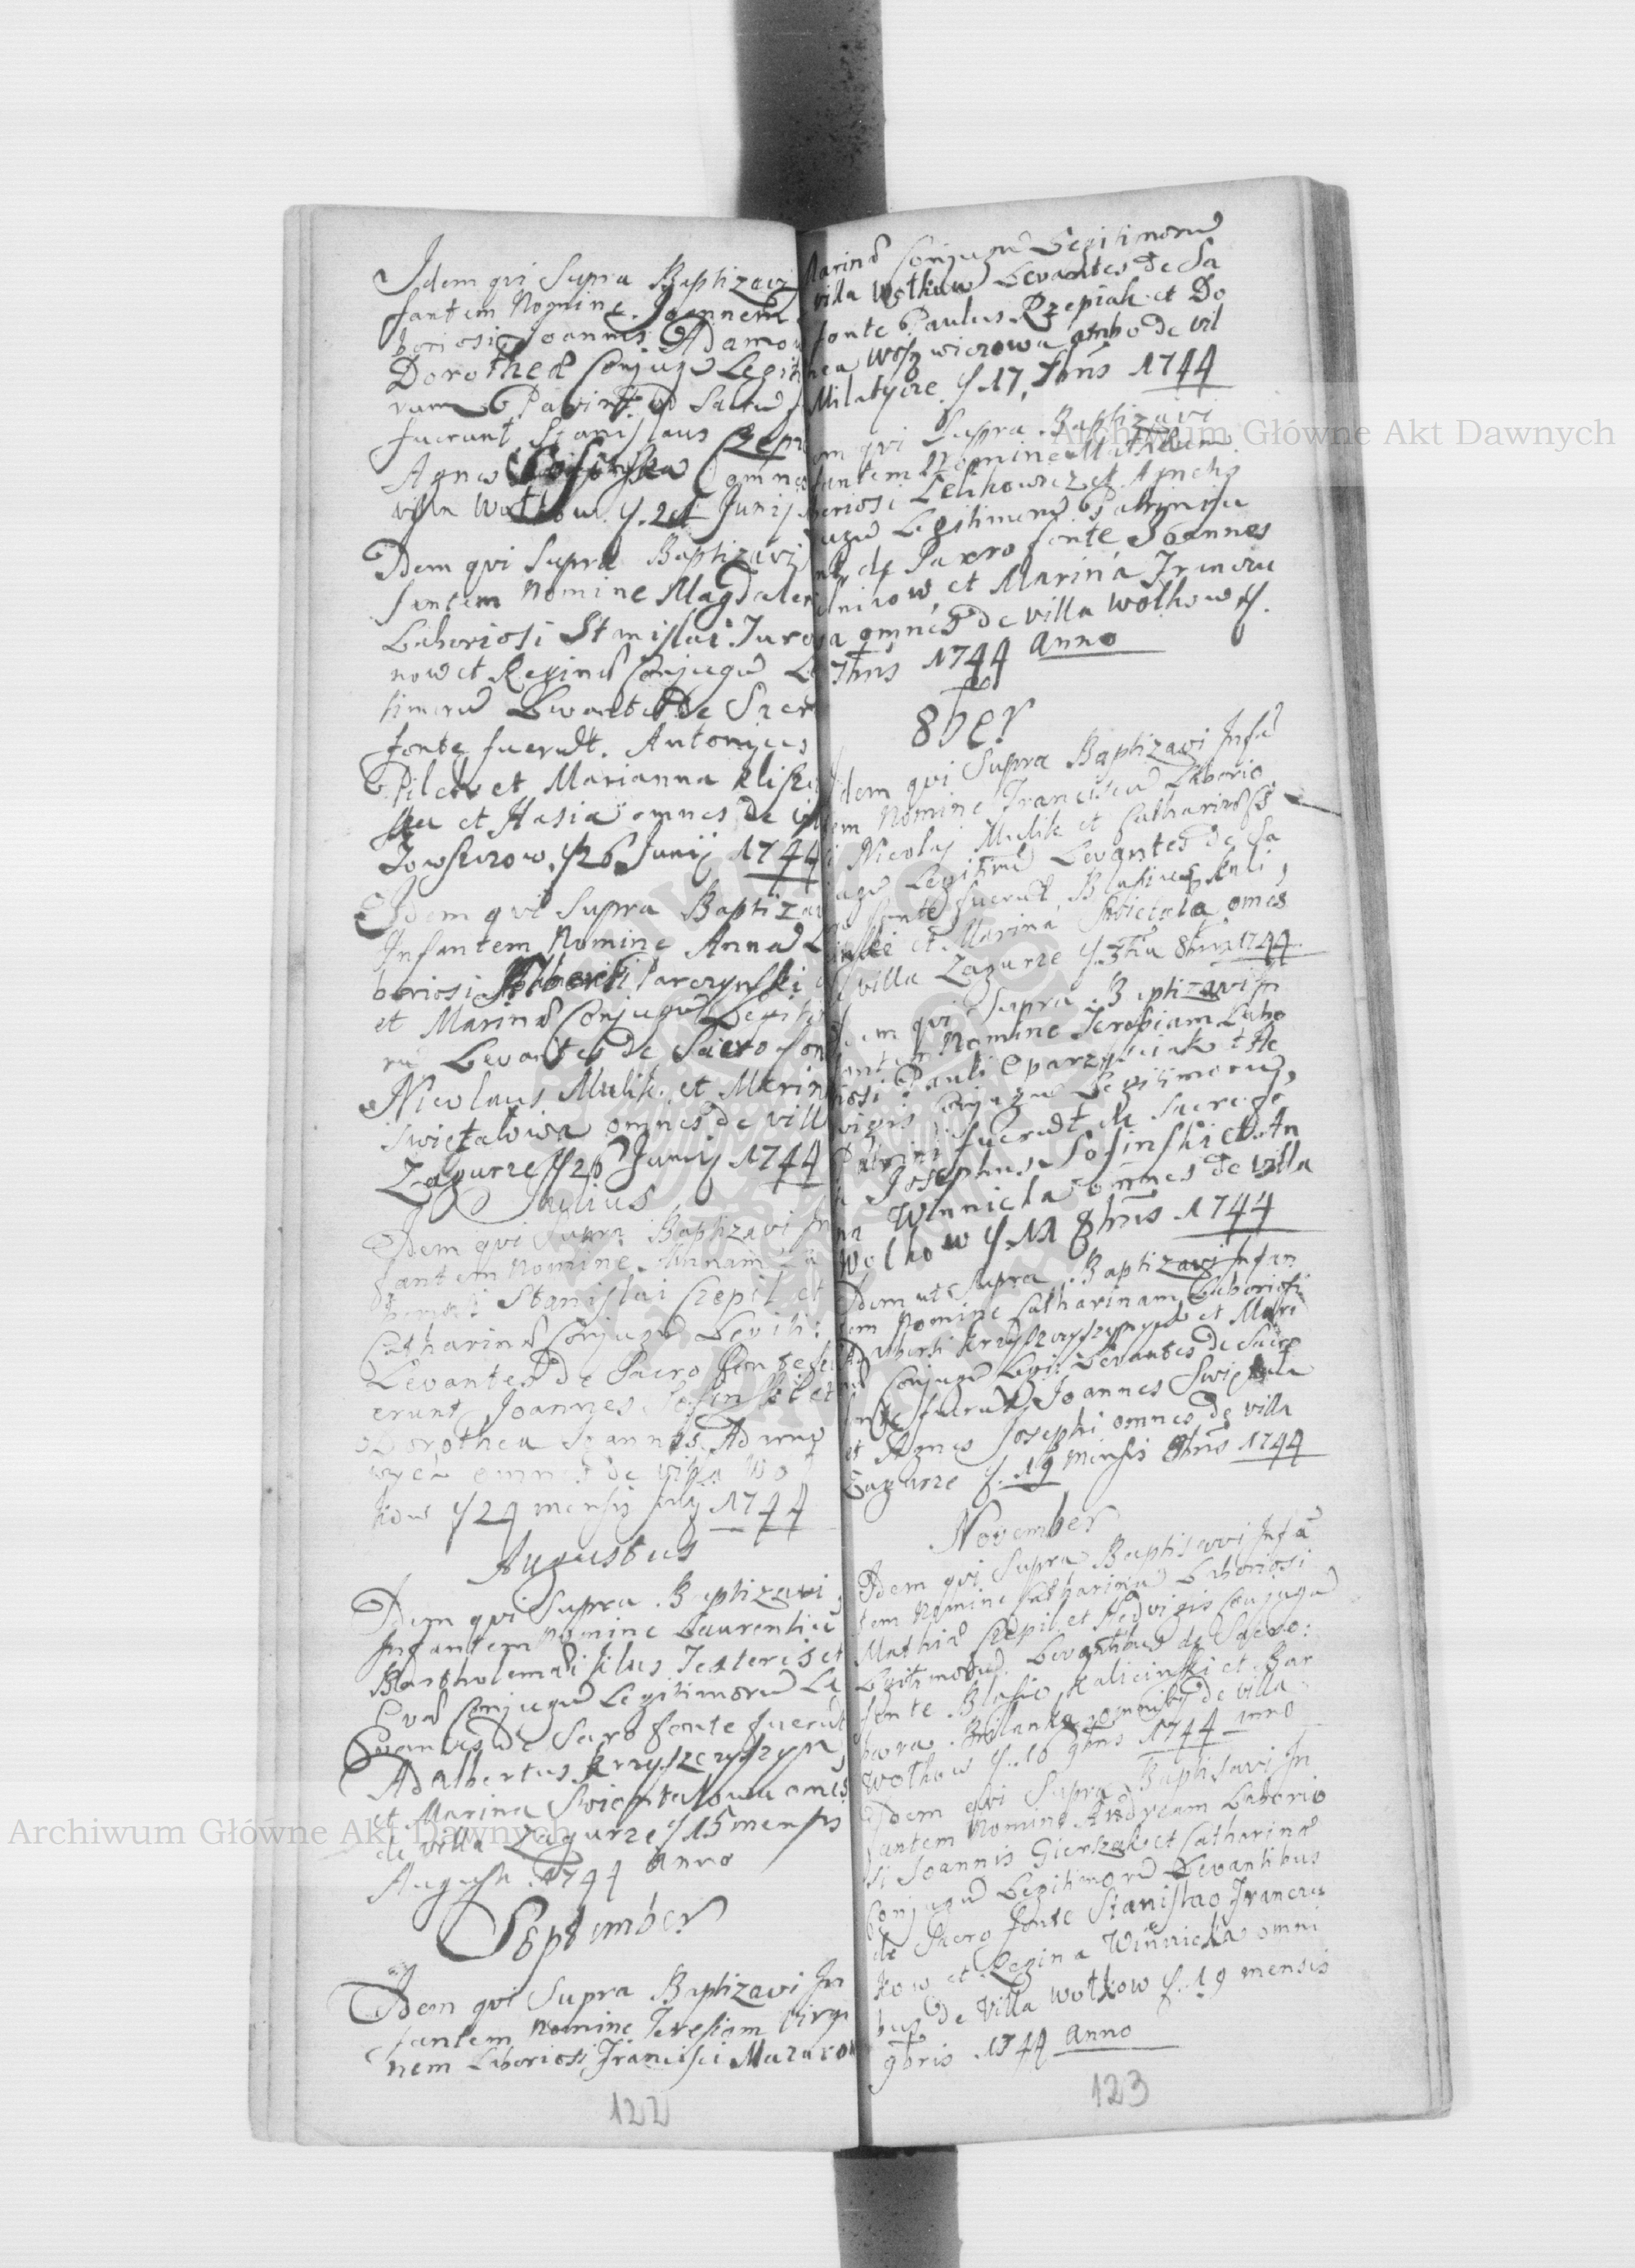 Idem qui Supra Baptizavi
fantem Nomine Joannem
boriosi Joannis Adamow
Dorotheæ Conjugũ Legiti
rum Patrini de Sacro
fuerunt Stanislaus Czepi
Agnes omnes
villa Wołkow. 24 Junij
Idem qui Supra Baptizavi
fantem Nomine Magdalen
Laboriosi Stanislai Juro
now et Reginæ Conjugũ Le
timorũ Levantes De Sacr
fonte fuerũt. Antonius
Pilch et Marianna
et Hasia omnes de vil
26 Junij 1744
Idem qui Supra Baptizav
Infantem Nomine Annã L
boriosi Alberti Parczynski
et Marinæ Conjugũ Legiti
rũ Levantes de Sacro fon
Nicolaus Mulik et Marin
Swiętalowa omnes de vill
Zagurze 26 Junij 1744
Julius
Idem qui Supra Baptizavi In
fantem Nomine Annam La
Stanislai Czepil et
Catharinæ Conjugũ Legiti:
Levantes De Sacro fonte fu
erunt Joannes Sosinski et
Dorothea Joannes Adamo
omnes de villa Wo
kow 24 mensis July 1744
Augustus
Idem qui Supra Baptizavi
Infantem Nomine Laurentiũ
Bartholemæi Filus Texteris et
Evæ Conjugũ Legitimorũ Le
vantes de Sacro fonte fuerũt
Adalbertus Krzyszczyszyn
et Marina Swientalowa omes
de villa Zagurze 15 mensis
Augusti 1744 Anno
September
Idem qui Supra Baptizavi In
fantem Nomine Teresiam Virgi
nem Laboriosi Francisci Mazurow
122
Marinæ Conjugũ Legitimorũ
villa Wołkow Levantes de Sa
fonte Paulus Rzepiak et Do
ambo de vil
Milatycze 17 7bris 1744
em qui Supra Baptizavi
fantem Nomine Mathæum
boriosi Lenkowicz et Agnetis
ugũ Legitimorũ Patrini fu
de Sacro fonte Joannes
et Marina Francu
omnes de villa Wołkow
7bris 1744 Anno
8ber
Idem qui Supra Baptizavi Infã
tem Nomine Franciscũ Laborio
si Nicolaj Mulik et Catharinæ Cõ
jugũ Legitimũ Levantes de Sa
cro fonte fuerũt, Blasius Kali,
inski et Marina Swietala omes
de villa Zagurze 7ma 8bris 1744.
Idem qui Supra Baptizavi In
fantem Nomine Teresiam Labo
riosi Pauli et He
vigis Conjugũ Legitimorũ,
Patrini fuerũt de Sacro fo
Josephus Sosinski et An
na Winnicka omnes de villa
Wolkow 11 8bris 1744
Idem ut Supra Baptizavi Infan
tem Nomine Catharinam Laboriosi
Adalberti Krzyszczyszyn et Mari
næ Conjugũ Legi: Levantes de Sacro
fonte fuerũt Joannes Swiętala
et Agnes Josephi omnes de villa
Zagurze 19 Mensis 8bris 1744
November
Idem qui Supra Baptisavi Infã
tem Nomine Catharinã Laboriosi
Mathiæ Czepil et Hedvigis Conjugũ
Legitimorũ. Levantibus de Sacro:
fonte Blasio Kalicinski et Bar
bara Bilanka omnibus de villa
Wołkow 16 9bris 1744 Anno
Idem qui Supra Baptisavi In
fantem Nomine Andream Laborio
si Joannis Gierszak et Catharinæ
Conjugũ Legitimorũ Levantibus
de Sacro fonte Stanislao Francu
kow et Regina Winnicka omni
bus de Villa Wołkow 19 mensis
9bris 1744 Anno
123
Archiwum Główne Akt Dawnych
Archiwum Główne Akt Dawnych